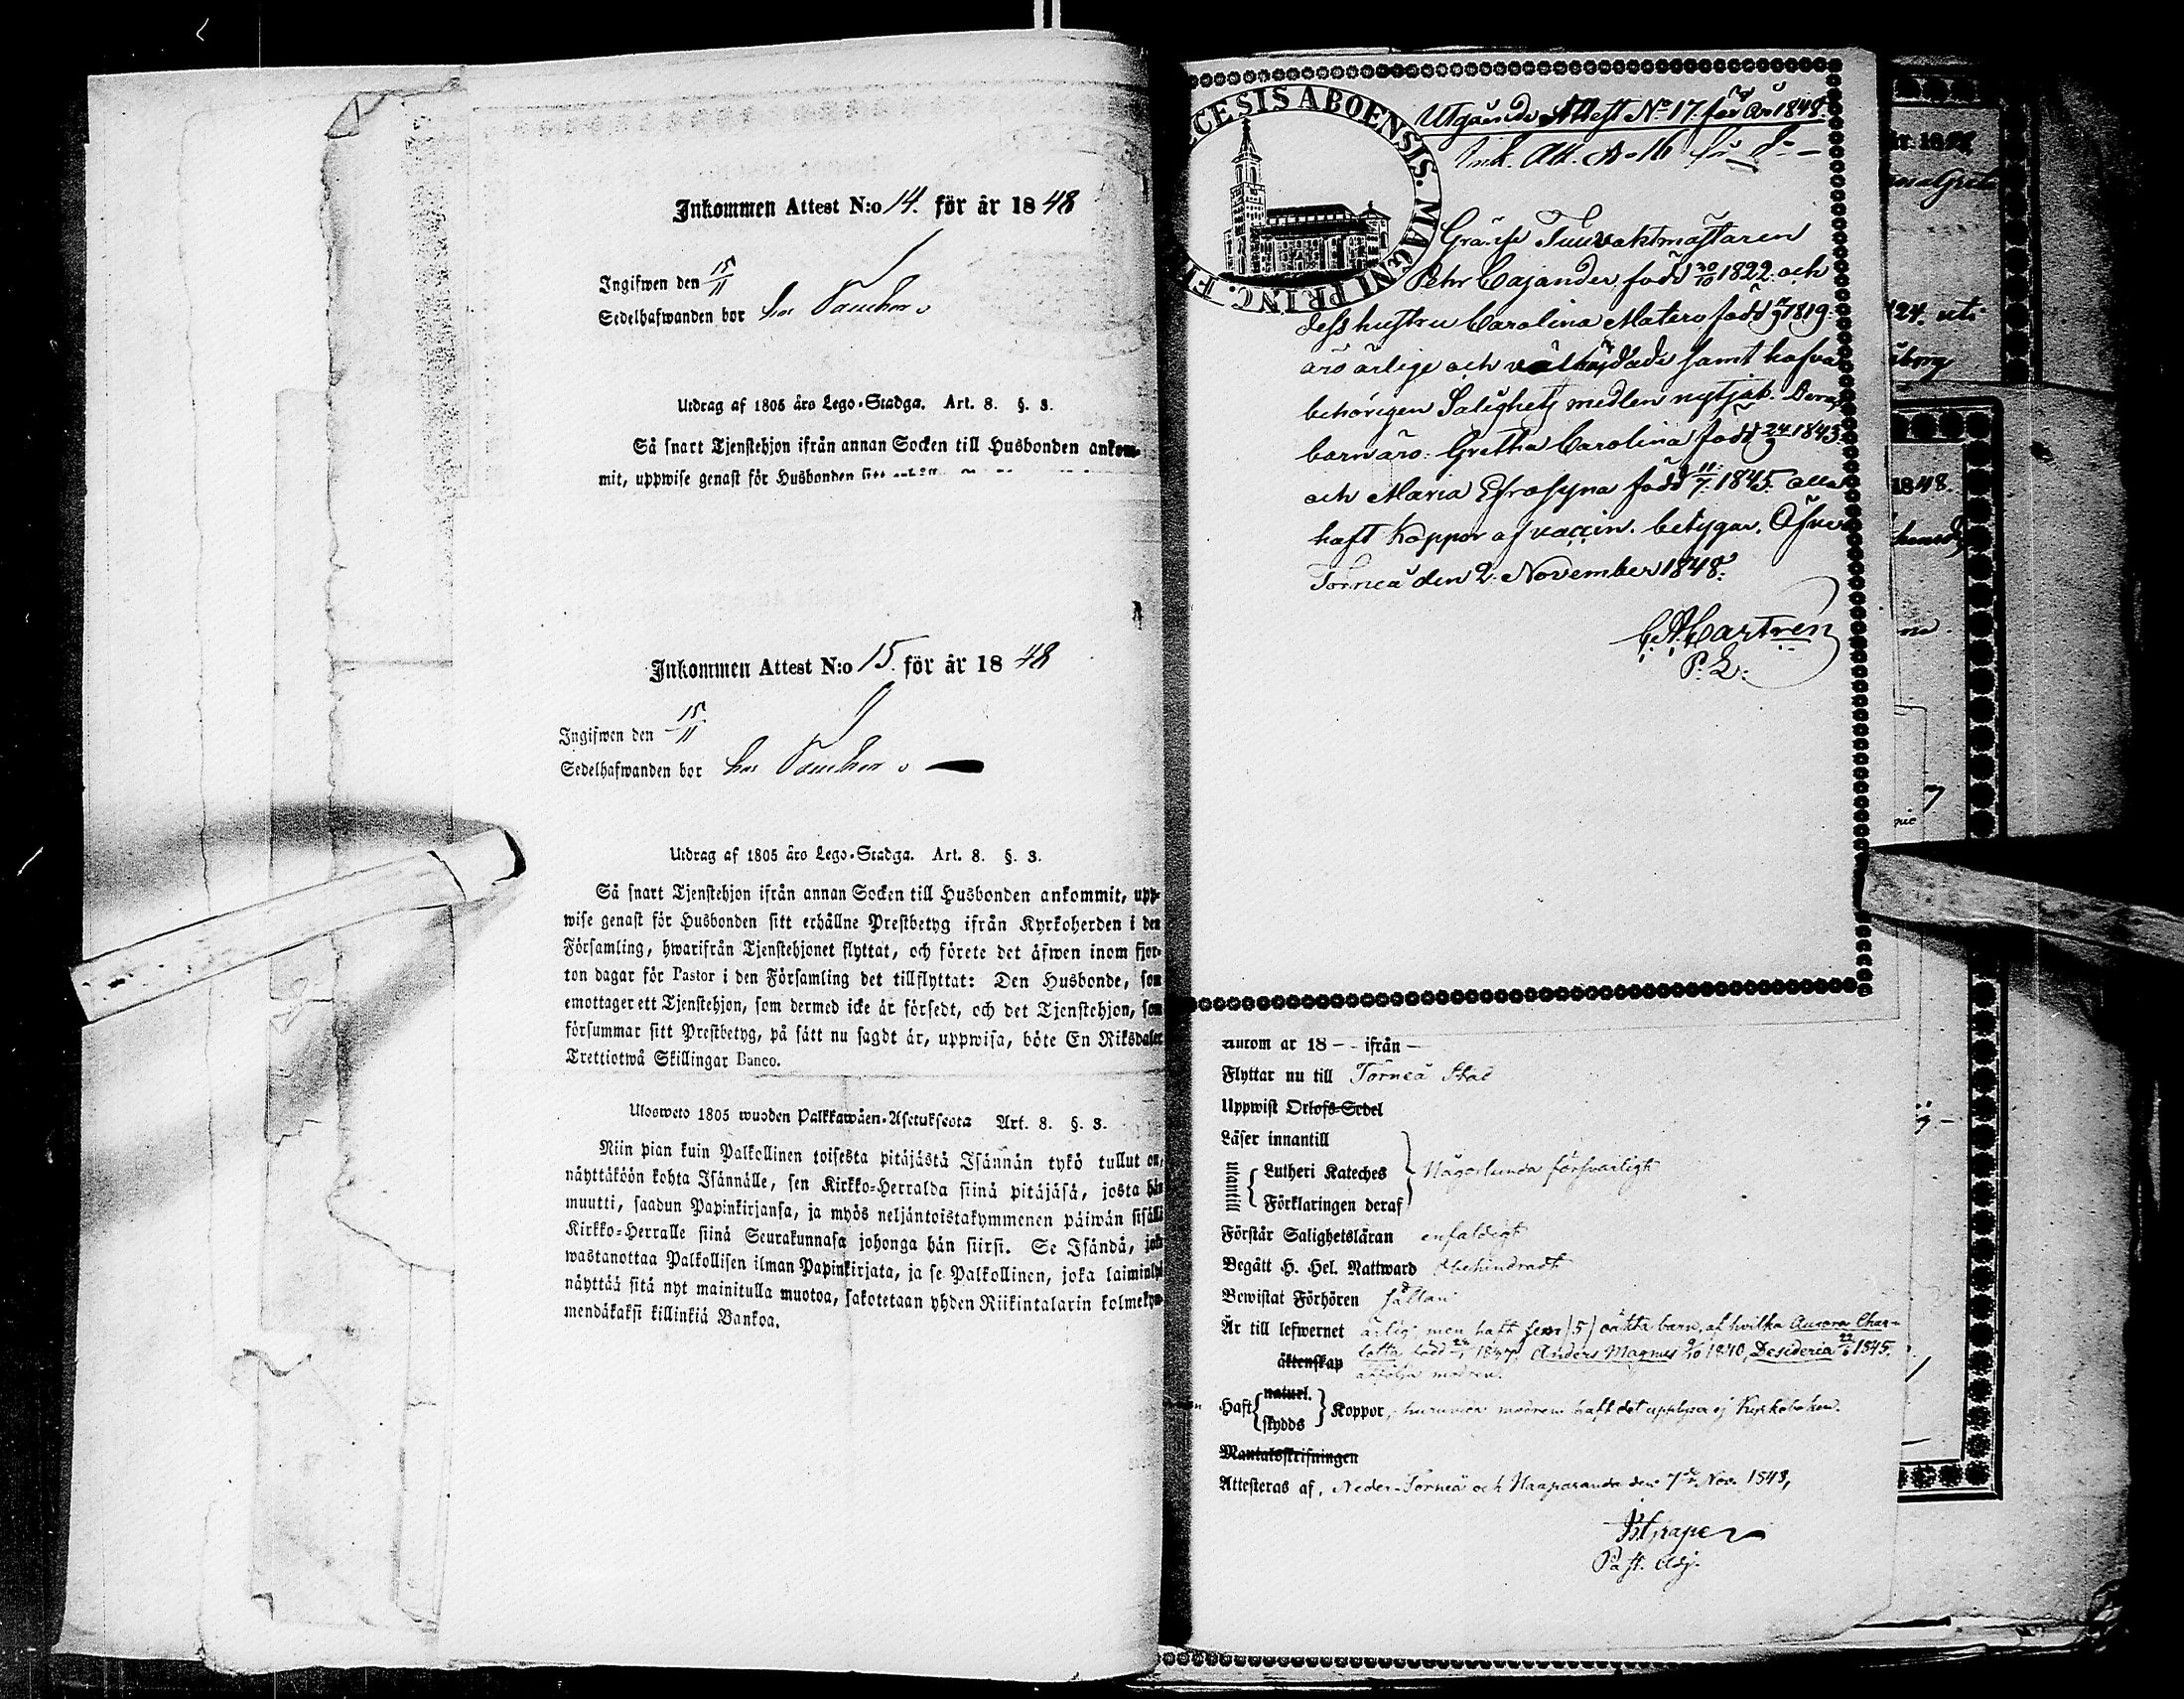 Inkommen Attest N:o 14. för år 1848
Ingifwen den 15/11
Sedelhafwanden bor hos
Utdrag af 1805 års Lego-Stadga. Art. 8. §. 3.
Så snart Tjenstehjon ifrån annan Socken till Husbonden ankom-
mit, uppwise genast för Husbonden sitt
Inkommen Attest N:o 15. för år 1848
Ingifwen den 15/11
Sedelhafwanden bor hos
Utdrag af 1805 års Lego-Stadga. Art. 8. §. 3.
Så snart Tjenstehjon ifrån annan Socken till Husbonden ankommit, upp-
wise genast för Husbonden sitt erhållne Prestbetyg ifrån Kyrkoherden i den
Församling, hwarifrån Tjenstehjonet flyttat, och förete det äfwen inom fjor-
ton dagar för Pastor i den Församling det tillflyttat: Den Husbonde, som
emottager ett Tjenstehjon, som dermed icke är försedt, och det Tjenstehjon, som
försummar sitt Prestbetyg, på sätt nu sagdt är, uppwisa, böte En Riksdaler
Trettiotwå Skillingar Banco.
Ulosweto 1805 wuoden Palkkawäen-Asetuksesta Art. 8. §. 3.
Niin pian kuin Palkollinen toisesta pitäjästä Isännän tykö tullut on,
näyttäköön kohta Isännälle, sen Kirkko-Herralda siinä pitäjäsä, josta hän
muutti, saadun Papinkirjansa, ja myös neljäntoistakymmenen päiwän sisällä
Kirkko-Herralle siinä Seurakunnasa johonga hän siirsi. Se Isändä, joka
wastanottaa Palkollisen ilman Papinkirjata, ja se Palkollinen, joka laiminlyö
näyttää sitä nyt mainitulla muotoa, sakotetaan yhden Riikintalarin kolmekym-
mendäkaksi killinkiä Bankoa.
CESIS ABOENSIS. MAGNI PRINC. F
Utgående Attest No 17. för år 1848.
Ink. Att. No 16 för d:o
Gräns Tullvaktmästaren
Petter Cajander, född 30/10 1822. och
dess hustru Carolina Matero född 1819.
äro ärlige och välfrejdade samt hafva
behörigen Salighets medlen nyttjat. Deras
barn äro: Gretha Carolina född 24/9 1843.
och Maria Efrosyna född 11/7 1845. alla
haft koppor af vaccin. betygar. Öfver
Torneå den 2. November 1848.
C. A. Castrén
P. L.
Ankom år 18 -- ifrån —
Flyttar nu till Torneå Stad
Uppwist Orlofs-Sedel
Läser innantill
utantill { Lutheri Kateches } Någorlunda försvarligt
Förklaringen deraf
Förstår Salighetsläran enfaldigt
Begått H. Hel. Nattward Obehindradt
Bewistat Förhören sällan
Är till lefwernet ärlig, men haft fem (5) oäkta barn, af hvilka Aurora Char-
lotta född 1837, Anders Magnus 9/10 1840, Desideria 22/6 1845.
äktenskap åtfölja modren.
Haft { naturl. skydds } Koppor, huruvida modren haft det upplyser ej Kyrkoboken.
Mantalsskrifningen
Attesteras af, Neder-Torneå och Haaparanda den 7de Nov. 1848,
Grape
Past. Adj.